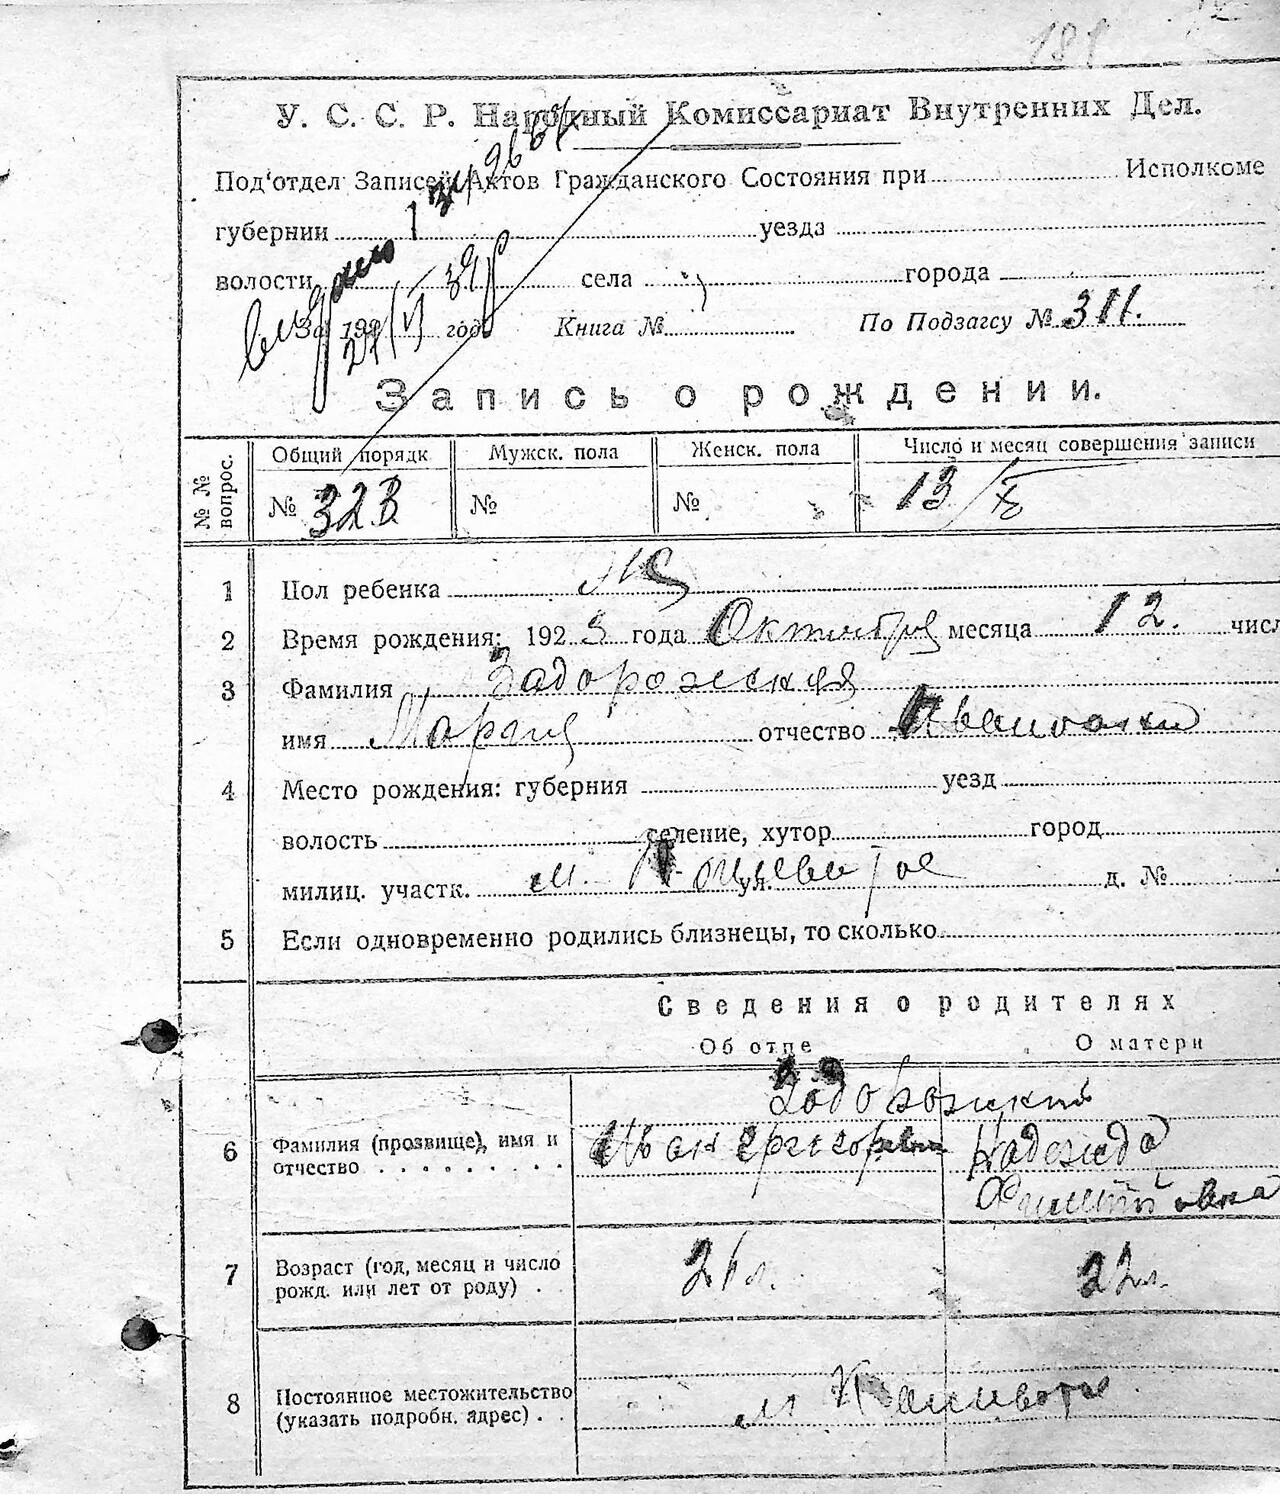 181
У. С. С. Р. Народный Комиссариат Внутренних Дел.
Под'отдел Записей Актов Гражданского Состояния при Исполкоме
губернии 1 уезда
волости села города
За 192 год. Книга № По Подзагсу № 311.
Запись о рождении.
№ № вопрос. Общий порядк Мужск. пола Женск. пола Число и месяц совершения записи
№ 323 № № 13/X
1 Пол ребенка Ж
2 Время рождения: 1923 года Октября месяца 12. числ
3 Фамилия Задорожская
имя Мария отчество Ивановна
4 Место рождения: губерния уезд
волость селение, хутор город
милиц. участк. м. ул. д. №
5 Если одновременно родились близнецы, то сколько
Сведения о родителях
Об отце О матери
Задорожский
6 Фамилия (прозвище), имя и отчество Иван Григориевич Надежда
7 Возраст (год, месяц и число рожд. или лет от роду) 21 л. 22 л.
8 Постоянное местожительство (указать подробн. адрес) м